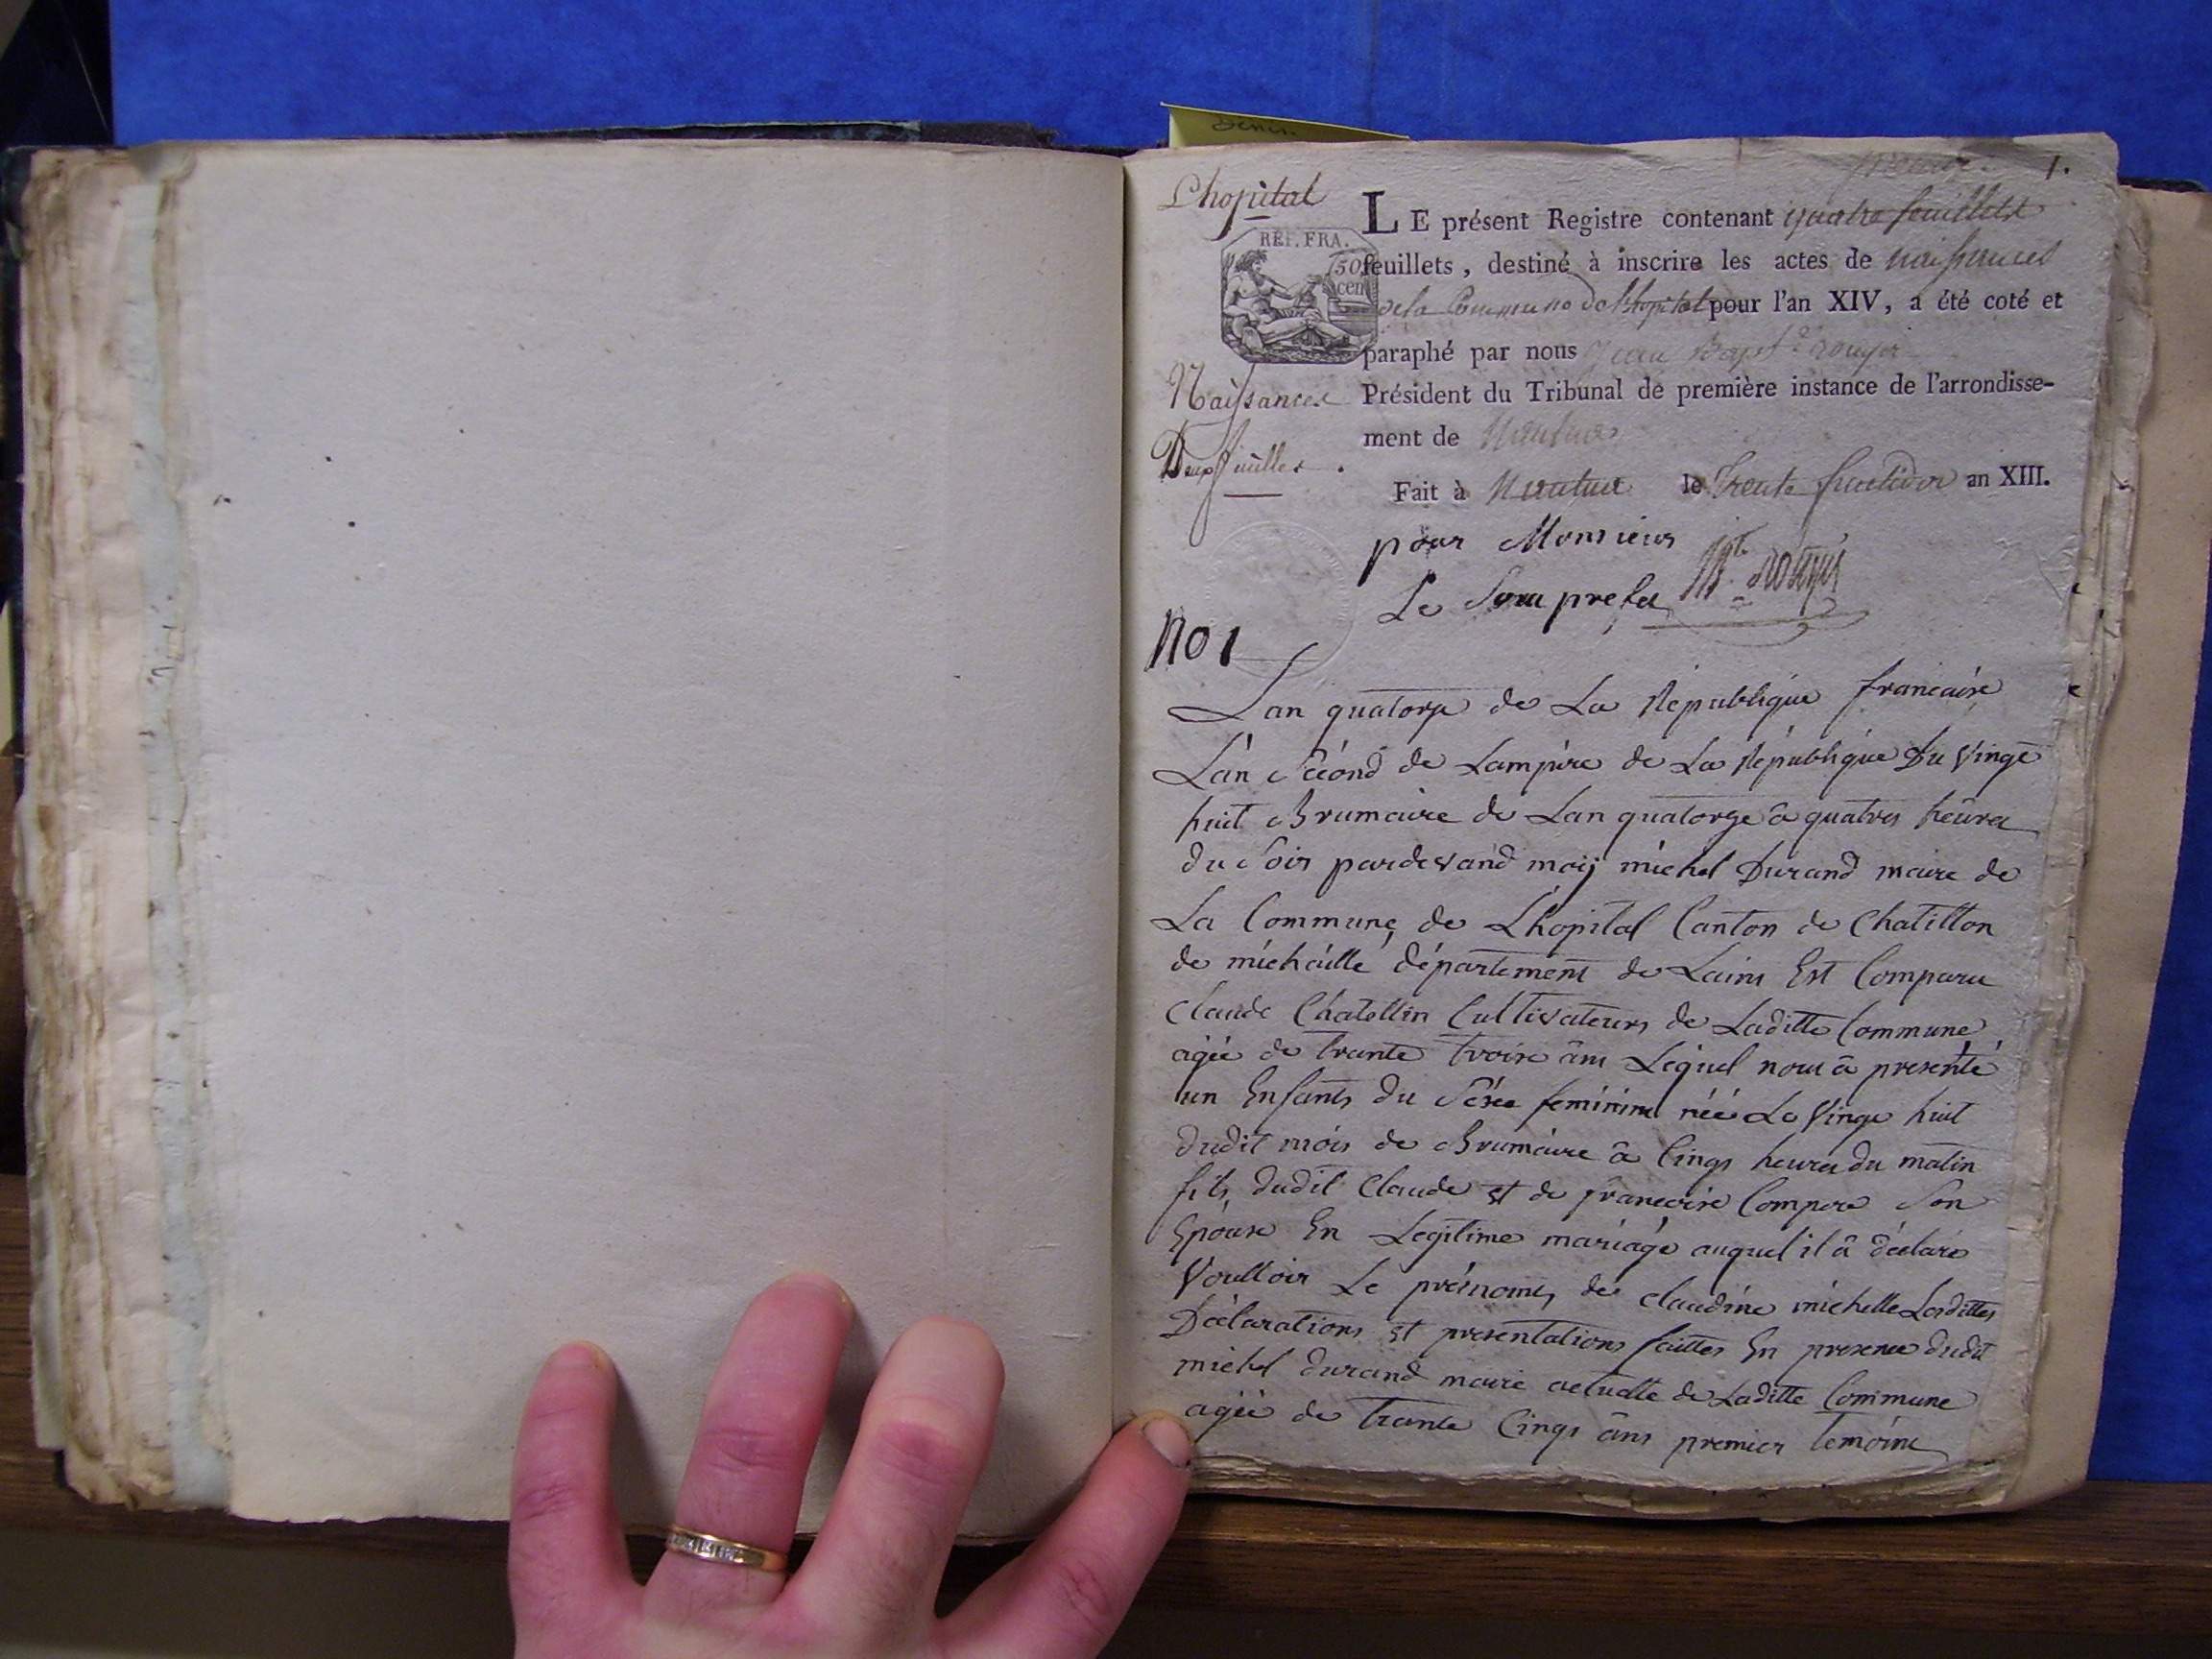 Lhopital
1.
LE présent Registre contenant quatre feuillets
REP. FRA.
50 cen
feuillets, destiné à inscrire les actes de naissances
de la Commune de Lhopital pour l'an XIV, a été coté et
paraphé par nous Jean Bapt.e rouyer
Naissances
Président du Tribunal de première instance de l'arrondisse-
ment de Nantua
Deux feuilles.
Fait à Nantua le trente fructidor an XIII.
pour Monsieur
Le Sous prefet
no 1
Lan quatorze de La République francaise
Lan Sécond de Lampire de La République Du Vingt
huit Brumaire de Lan quatorze à quatres heures
du Soir pardevand moij michel Durand maire de
La Commune de Lhopital Canton de Chatillon
de michaille département de Lains Est Comparu
Claude Chatellin Cultivateurs de Laditte Commune
agée de trante troise âns Lequel nous â presenté
un Enfants du Séxe feminine néé Le Vingt huit
dudit mois de Brumaire â Cinqs heures du matin
fils dudit Claude et de francoise Compere Son
Epouse En Legitime mariage auquel il â déclaré
Voulloir Le prénoms de claudine michelle Lesdittes
Déclarations et presentations faittes En presence dudit
michel durand maire actuelle de Laditte Commune
agée de trante Cinqs âns premier temoins